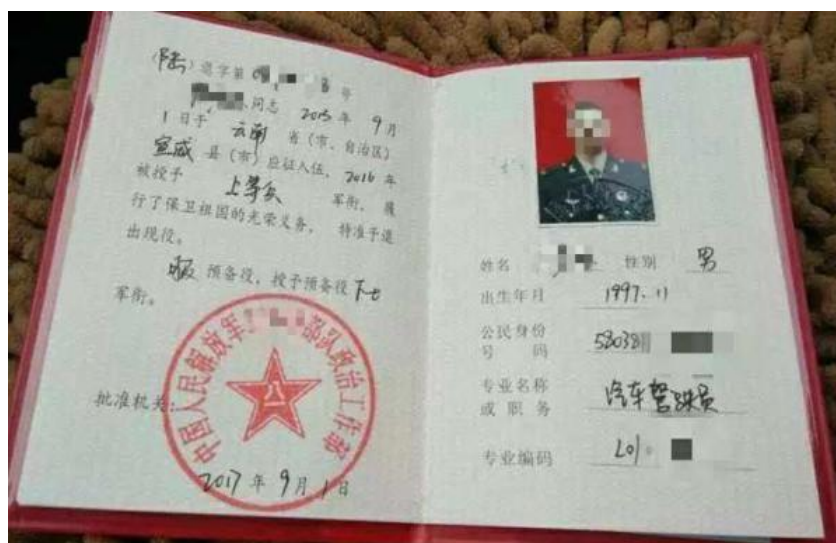 （陆）退字第 0 号
同志 2015年 9月
1日于 云南 省（市、自治区）
宣威 县（市）应征入伍，2016年
被授予 上等兵 军衔，履
行了保卫祖国的光荣义务，特准予退
出现役。
服 预备役，授予预备役 下士
军衔。
中国人民解放军 部队政治工作部
八一
批准机关：
2017年 9月 1日
姓名 性别 男
出生年月 1997.11
公民身份
号 码 53038
专业名称
或 职 务 汽车驾驶员
专业编码 L01